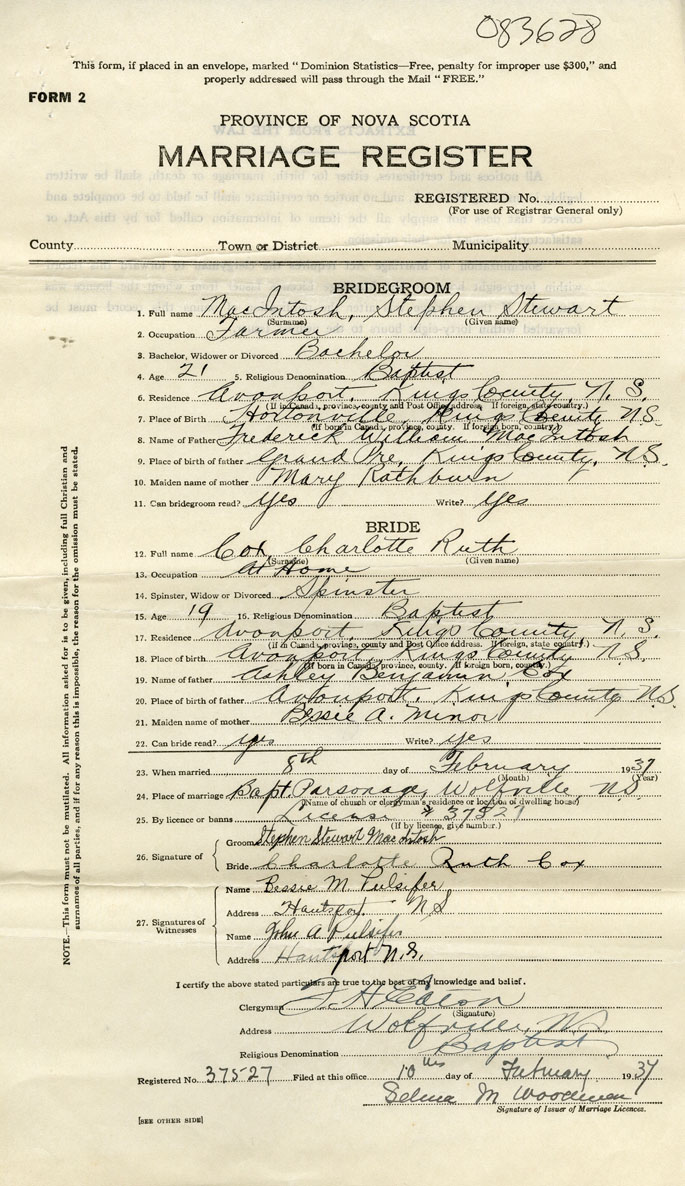 083628
This form, if placed in an envelope, marked "Dominion Statistics—Free, penalty for improper use $300," and
properly addressed will pass through the Mail "FREE."
FORM 2
PROVINCE OF NOVA SCOTIA
MARRIAGE REGISTER
REGISTERED No.
(For use of Registrar General only)
County Town or District Municipality
BRIDEGROOM
1. Full name MacIntosh, Stephen Stewart
(Surname) (Given name)
2. Occupation Farmer
3. Bachelor, Widower or Divorced Bachelor
4. Age 21 5. Religious Denomination Baptist
6. Residence Avonport, Kings County, N. S.
(If in Canada, province, county and Post Office address. If foreign, state country.)
7. Place of Birth Hortonville, Kings County N.S.
(If born in Canada, province, county. If foreign born, country.)
8. Name of Father Frederick William MacIntosh
9. Place of birth of father Grand Pre, Kings County, N.S.
10. Maiden name of mother Mary Rathburn
11. Can bridegroom read? yes Write? yes
BRIDE
12. Full name Cox, Charlotte Ruth
(Surname) (Given name)
13. Occupation At Home
14. Spinster, Widow or Divorced Spinster
15. Age 19 16. Religious Denomination Baptist
17. Residence Avonport, Kings County, N. S.
(if in Canada, province, county and Post Office address. If foreign, state country.)
18. Place of birth Avonport, Kings County N.S.
(If born in Canada, province, county. If foreign born, country.)
19. Name of father Ashley Benjamin Cox
20. Place of birth of father Avonport, Kings County N.S.
21. Maiden name of mother Bessie A. Minor
22. Can bride read? yes Write? yes
23. When married 8th day of February 1937
(Month) (Year)
24. Place of marriage Bapt. Parsonage, Wolfville, N.S.
(Name of church or clergyman's residence or location of dwelling house)
25. By licence or banns License # 37527
(If by licence, give number.)
26. Signature of
Groom Stephen Stewart MacIntosh
Bride Charlotte Ruth Cox
27. Signatures of Witnesses
Name Bessie M Pulsifer
Address Hantsport N S
Name John A Pulsifer
Address Hantsport N.S.
I certify the above stated particulars are true to the best of my knowledge and belief.
Clergyman Eaton
(Signature)
Address Wolfville, N.S.
Religious Denomination Baptist
Registered No. 37527 Filed at this office 10th day of February 1937
Selina M Woodman
Signature of Issuer of Marriage Licences.
[SEE OTHER SIDE]
NOTE.—This form must not be mutilated. All information asked for is to be given, including full Christian and
surnames of all parties, and if for any reason this is impossible, the reason for the omission must be stated.